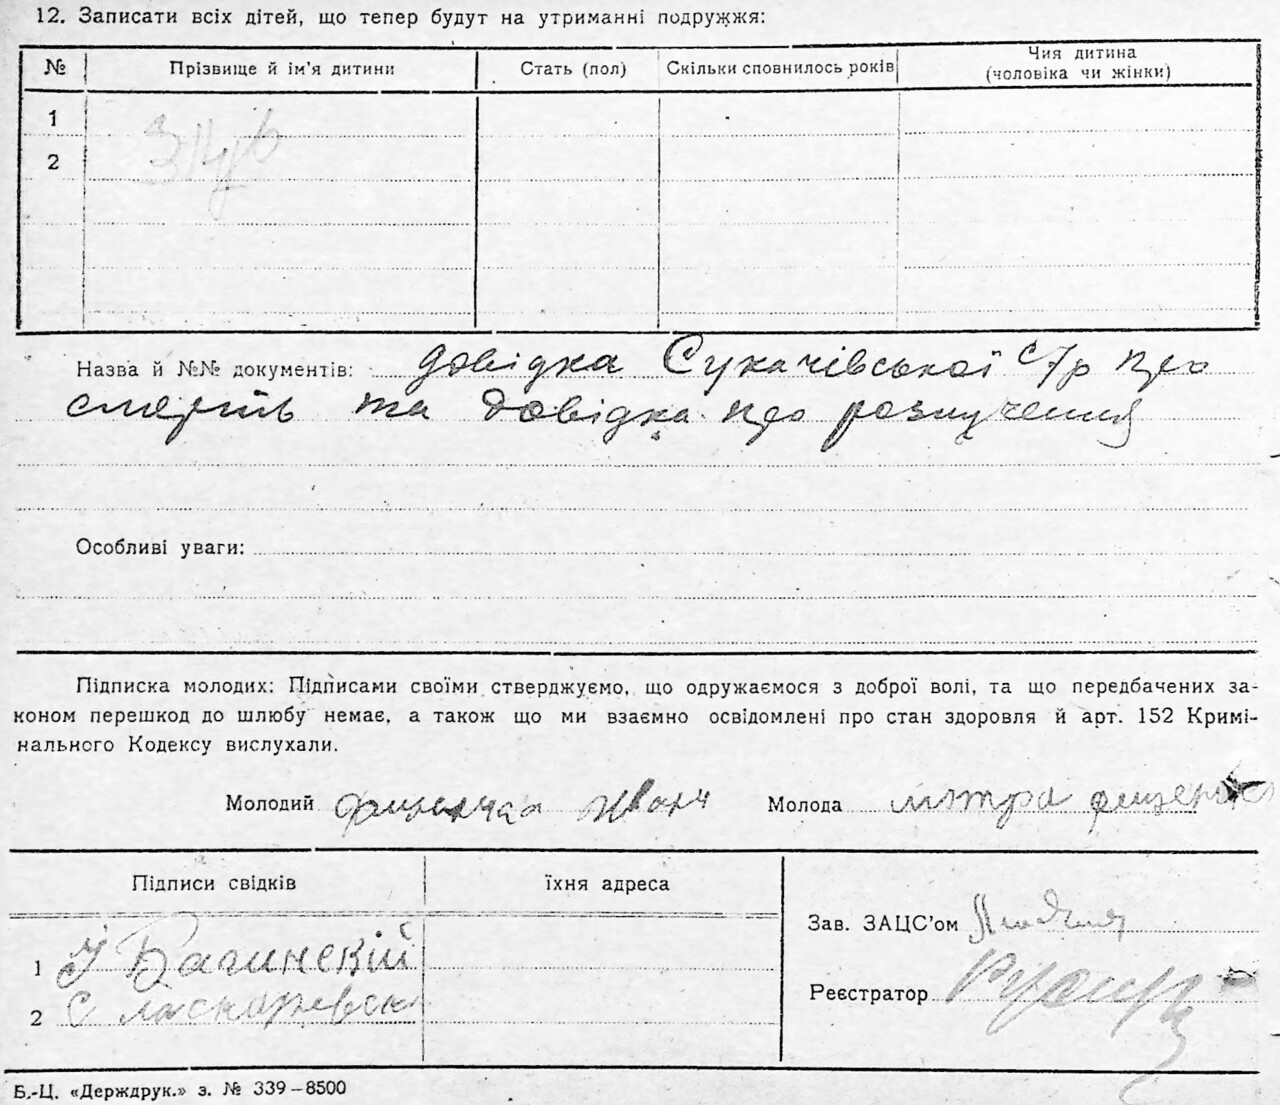 12. Записати всіх дітей, що тепер будут на утриманні подружжя:
№ Прізвище й ім'я дитини Стать (пол) Скільки сповнилось років Чия дитина
(чоловіка чи жінки)
1
2
Назва й №№ документів: довідка Сукачівської с/р про
смерть та довідка про розлучення
Особливі уваги:
Підписка молодих: Підписами своїми стверджуємо, що одружаємося з доброї волі, та що передбачених за-
коном перешкод до шлюбу немає, а також що ми взаємно освідомлені про стан здоровля й арт. 152 Кримі-
нального Кодексу вислухали.
Молодий Иван Молода
Підписи свідків їхня адреса
Зав. ЗАЦС'ом
1 І Багинскій
Реєстратор
2 С
Б.-Ц. «Держдрук.» з. № 339-8500